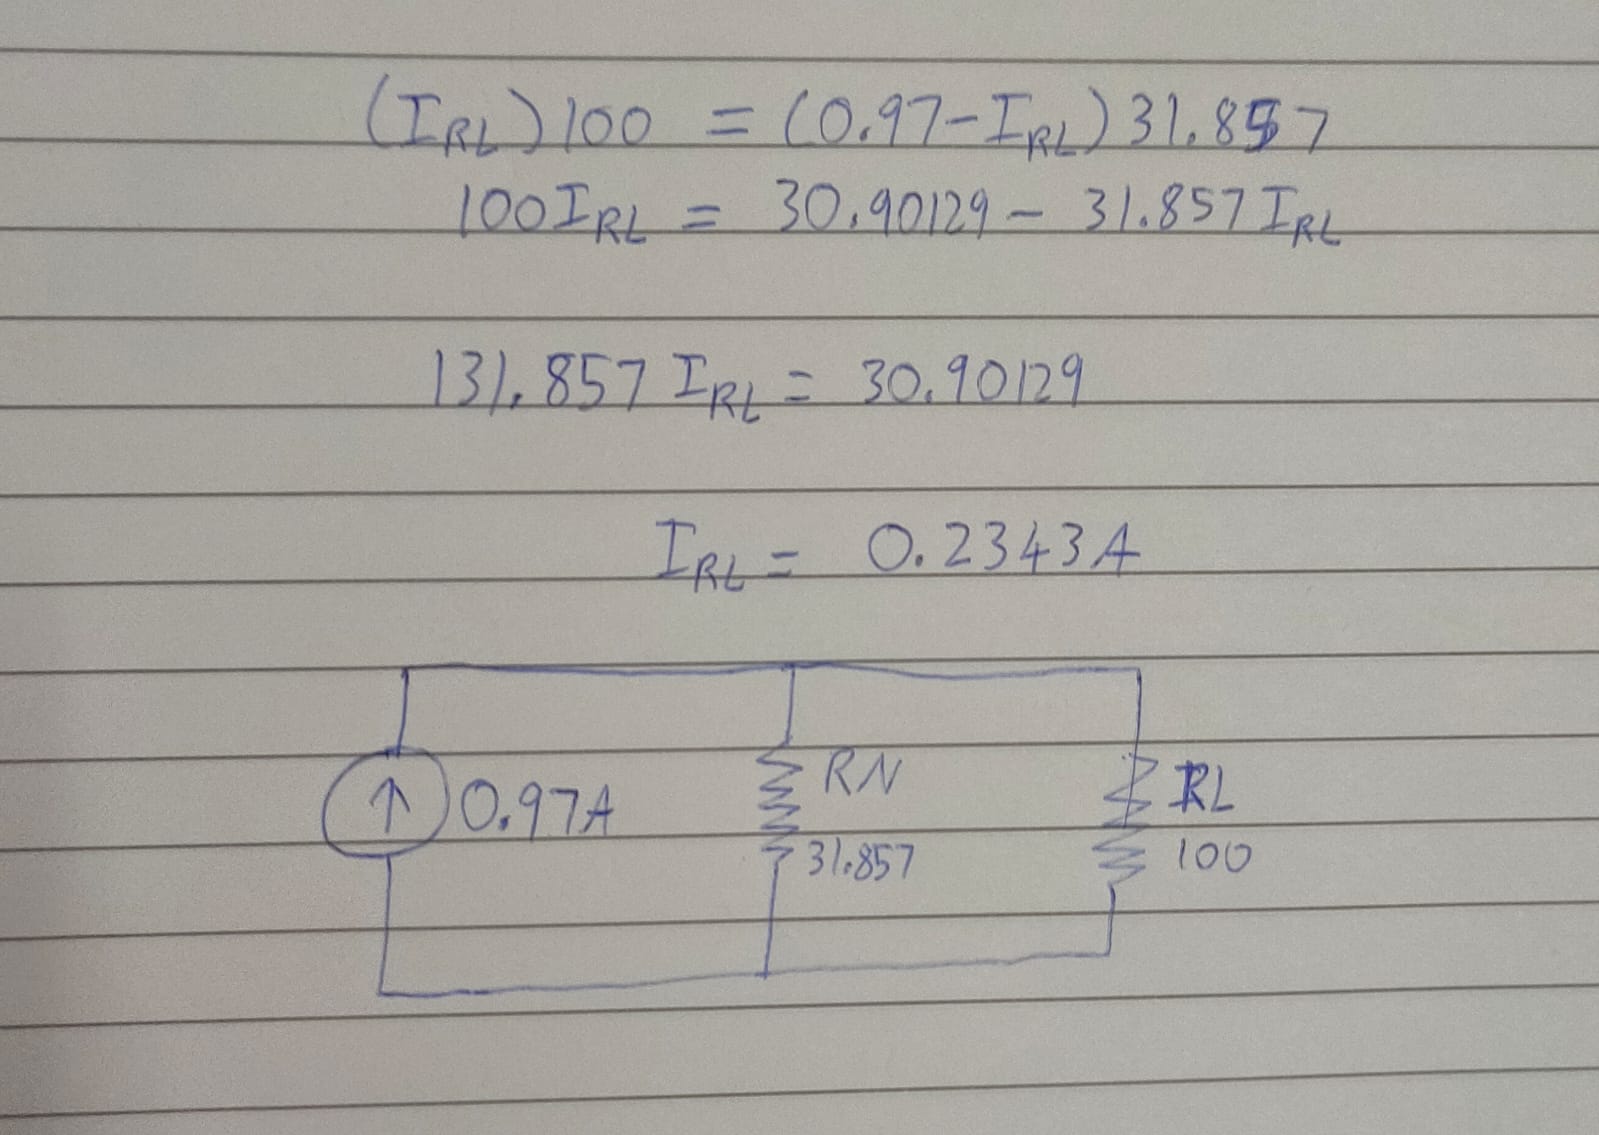 (IRL)100 = (0.97-IRL)31.857
100IRL = 30.90129 - 31.857 IRL
131.857 IRL = 30.90129
IRL = 0.2343A
↑ 0.97A
RN
31.857
RL
100